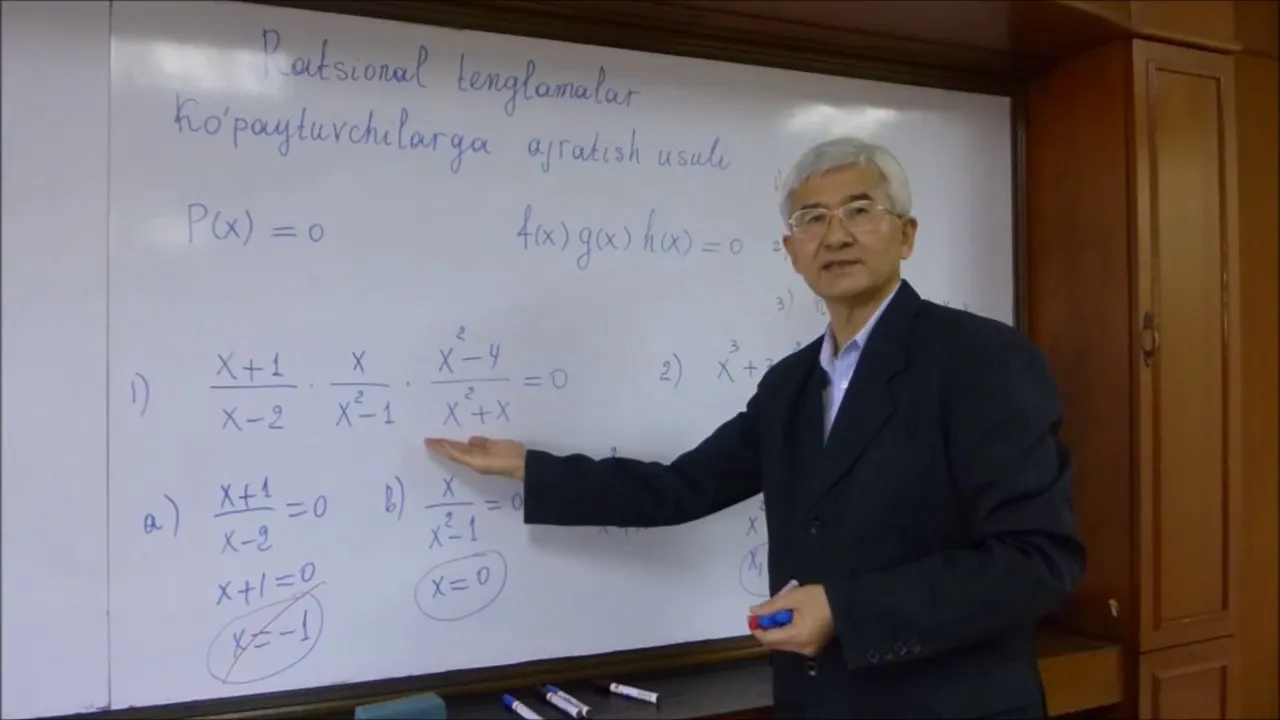 Ratsional tenglamalar
Ko'paytuvchilarga ajratish usuli
P(x) = 0
f(x) g(x) h(x) = 0
1)
2)
3)
1) (x+1)/(x-2) · x/(x²-1) · (x²-4)/(x²+x) = 0
2) x³+
a) (x+1)/(x-2) = 0
x+1=0
x=-1
b) x/(x²-1) = 0
x=0
x₁